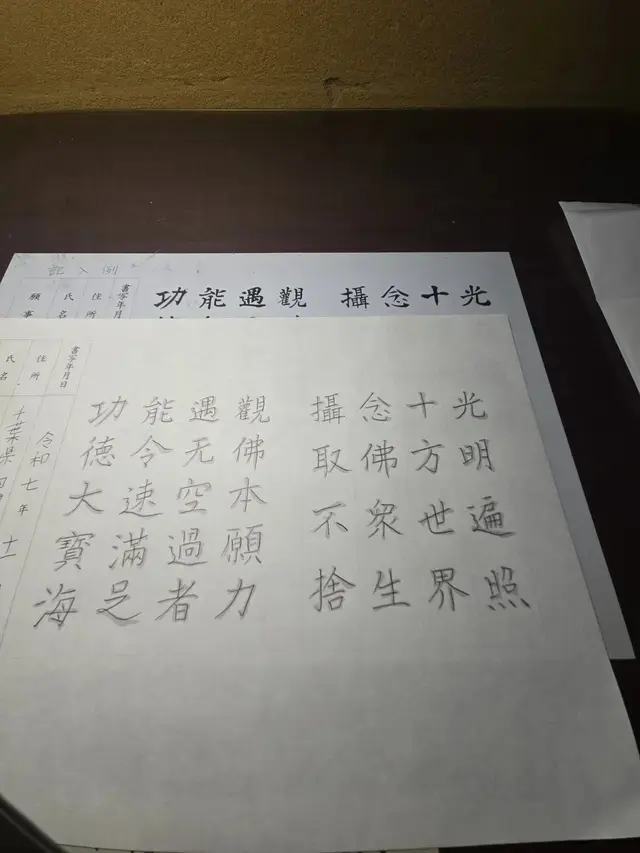 記入例
光
十
念
攝
觀
遇
能
功
書写年月
住所
氏名
願事
光明遍照
十方世界
念佛衆生
攝取不捨
觀佛本願力
遇无空過者
能令速滿足
功德大寶海
書写年月日
令和七年十
住所
千葉県
氏名